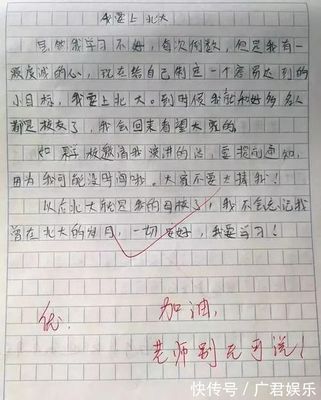 我要上北大
虽然我学习不好,每次倒数,但是我有一
颗虔诚的心,现在给自己制定一个容易达到的
小目标,我要上北大。到时候我就和好多名人
都是校友了,我会回来看望大家的。
如果学校邀请我演讲的话,要提前通知,
因为我可能没时间哦。大家不要太捧我!
以后北大就是我的母校了,我不会忘记我
曾在北大的岁月,一切安好,我要学习!
优
加油,
老师别无可说!
快传号/广君娱乐